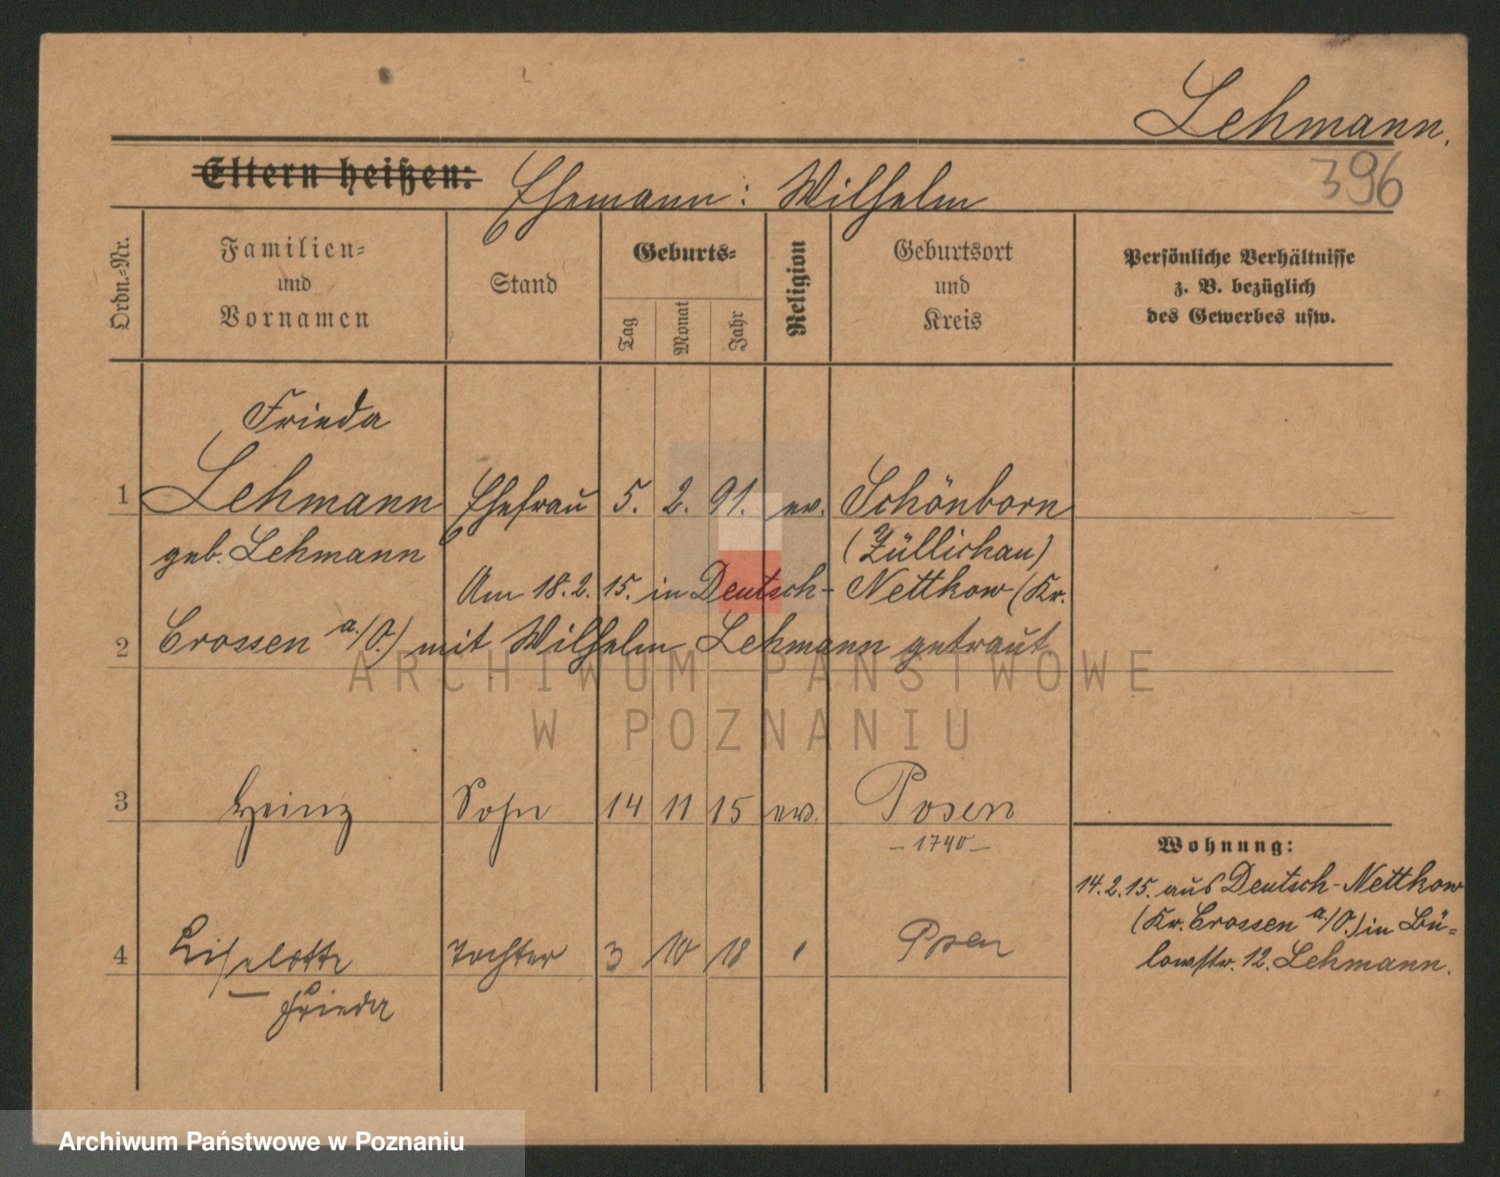 Lehmann.
396
Eltern heißen: Ehemann: Wilhelm
Ordn.-Nr.
Familien-
und
Vornamen
Stand
Geburts-
Tag
Monat
Jahr
Religion
Geburtsort
und
Kreis
Persönliche Verhältnisse
z. B. bezüglich
des Gewerbes usw.
Frieda
1 Lehmann Ehefrau 5. 2. 91. ev. Schönborn
geb. Lehmann (Züllichau)
Am 18.2.15. in Deutsch-Nettkow (Kr.
2 Crossen a./O.) mit Wilhelm Lehmann getraut
ARCHIWUM PAŃSTWOWE
W POZNANIU
3 Heinz Sohn 14 11 15 ev. Posen
- 1740 -
Wohnung:
14.2.15. aus Deutsch-Nettkow
(Kr. Crossen a./O.) in Bü-
lowstr. 12. Lehmann.
4 Liselotte Tochter 3 10 18 Posen
Frieda
Archiwum Państwowe w Poznaniu